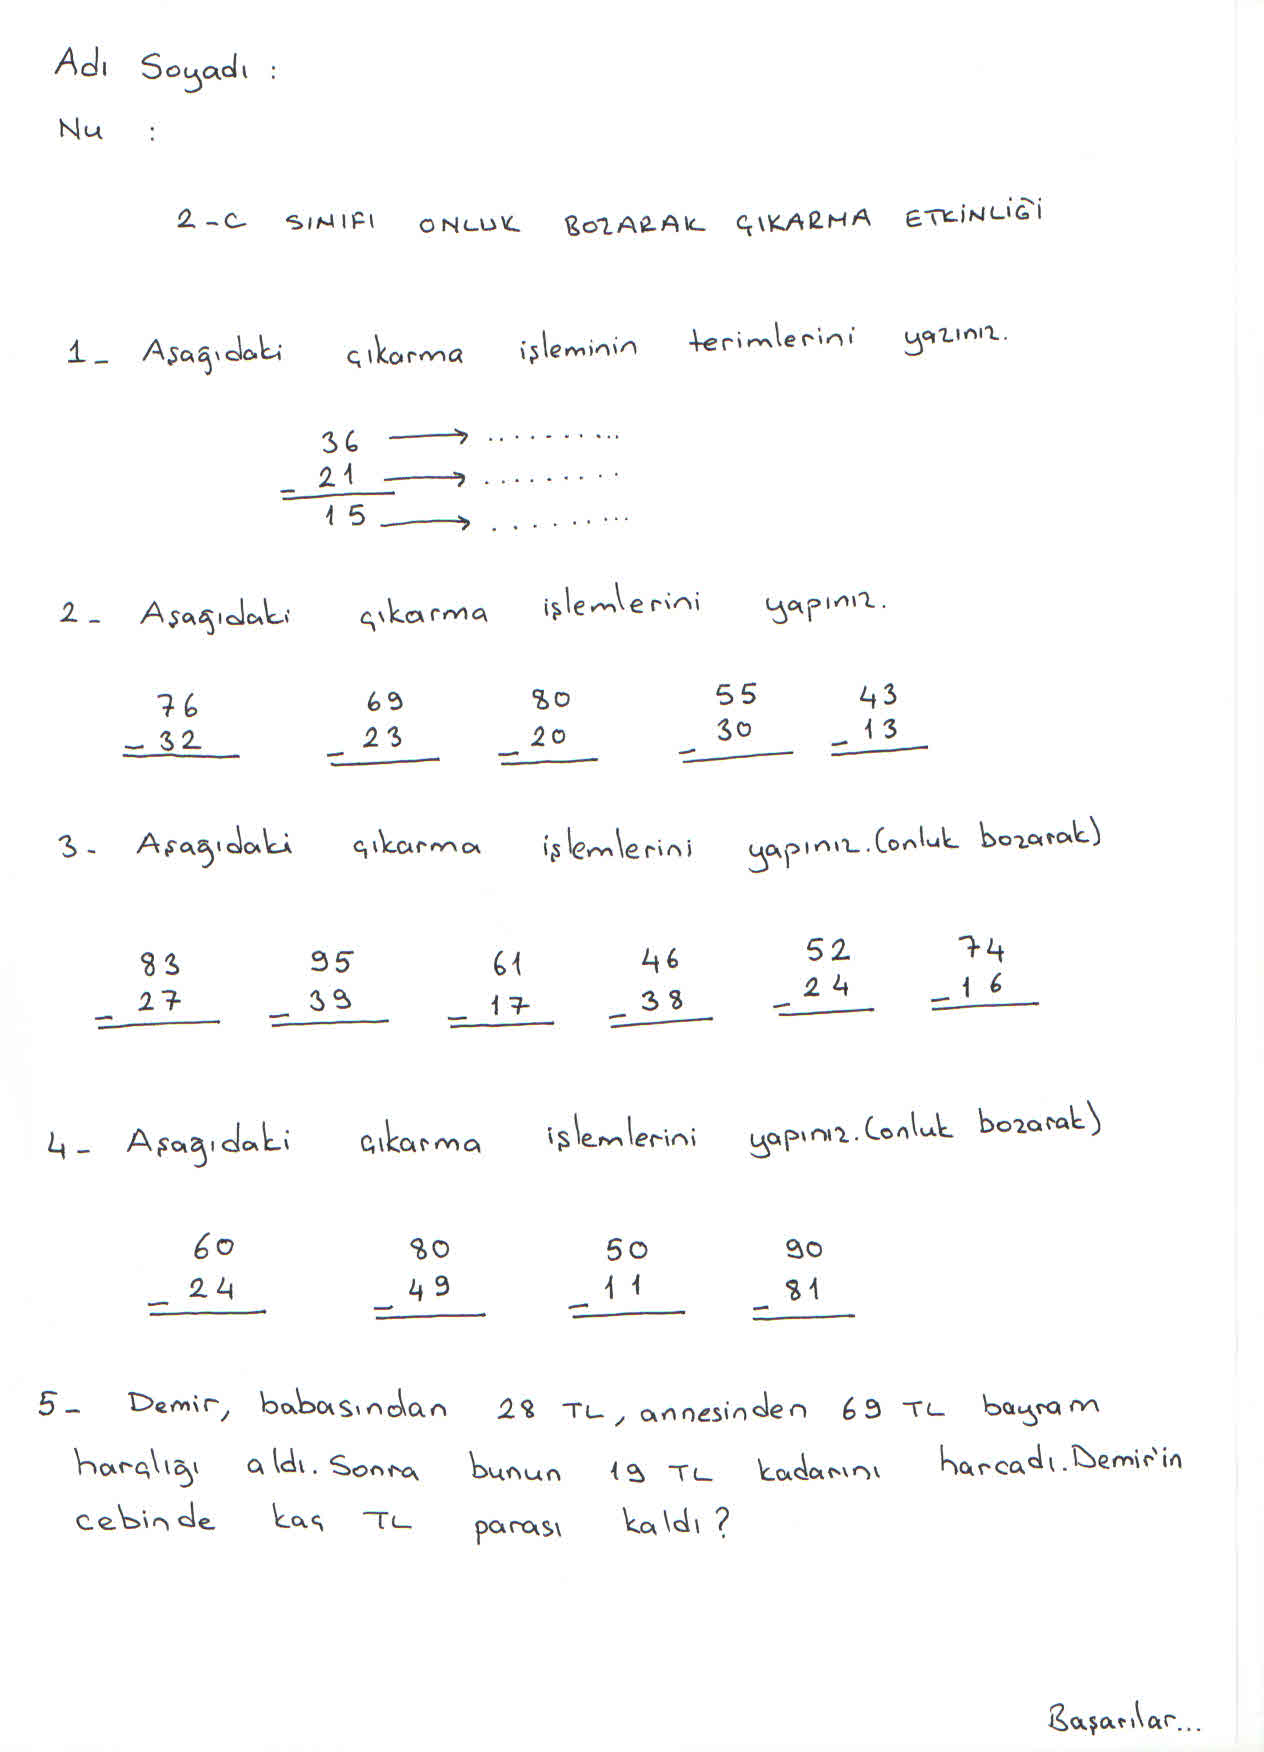 Adı Soyadı :
Nu :
2-C SINIFI ONLUK BOZARAK ÇIKARMA ETKİNLİĞİ
1- Aşağıdaki çıkarma işleminin terimlerini yazınız.
36 → ..........
- 21 → .........
15 → .........
2- Aşağıdaki çıkarma işlemlerini yapınız.
76 69 80 55 43
- 32 - 23 - 20 - 30 - 13
3- Aşağıdaki çıkarma işlemlerini yapınız.(onluk bozarak)
83 95 61 46 52 74
- 27 - 39 - 17 - 38 - 24 - 16
4- Aşağıdaki çıkarma işlemlerini yapınız.(onluk bozarak)
60 80 50 90
- 24 - 49 - 11 - 81
5- Demir, babasından 28 TL, annesinden 69 TL bayram
harçlığı aldı. Sonra bunun 19 TL kadarını harcadı. Demir'in
cebinde kaç TL parası kaldı?
Başarılar...